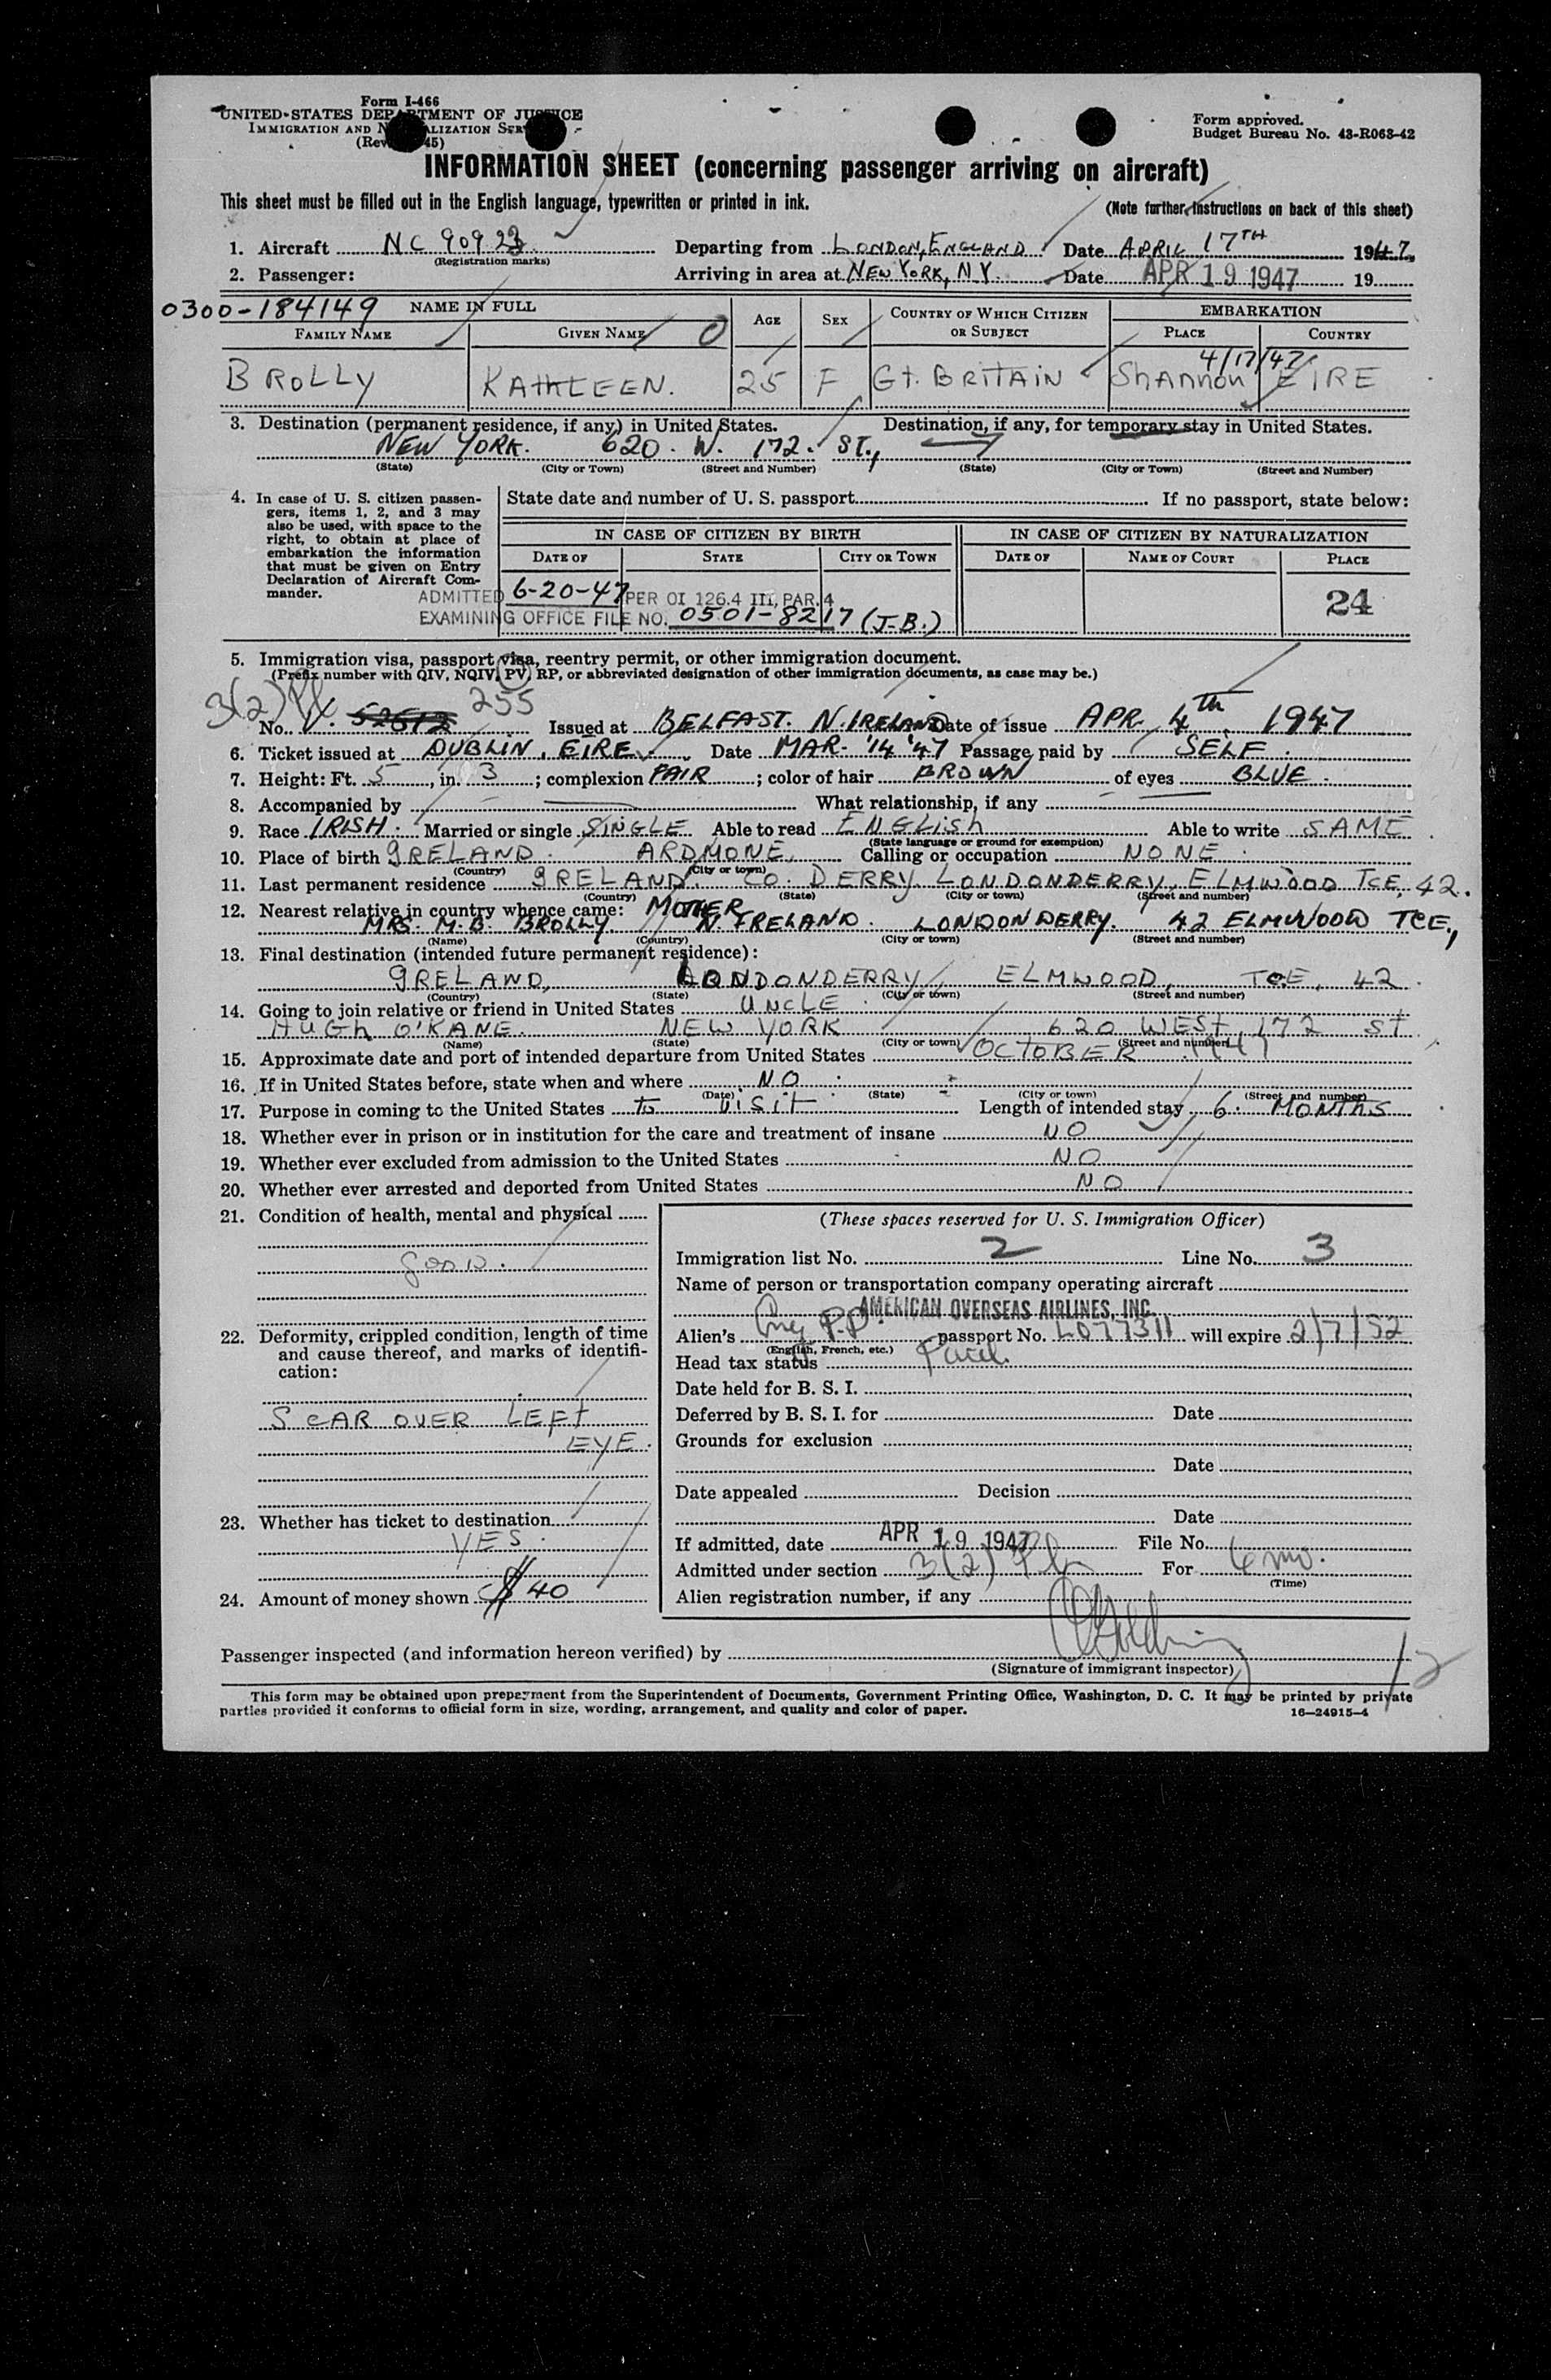 Form I-466
UNITED STATES DEPARTMENT OF JUSTICE
IMMIGRATION AND NATURALIZATION SERVICE
Form approved.
Budget Bureau No. 43-R063-42
INFORMATION SHEET (concerning passenger arriving on aircraft)
This sheet must be filled out in the English language, typewritten or printed in ink.
(Note further instructions on back of this sheet)
1. Aircraft NC 90923 Departing from LONDON, ENGLAND Date APRIL 17TH 1947.
(Registration marks)
2. Passenger: Arriving in area at NEW YORK, N.Y. Date APR 19 1947 19
0300-184149 NAME IN FULL AGE SEX COUNTRY OF WHICH CITIZEN OR SUBJECT EMBARKATION
FAMILY NAME GIVEN NAME PLACE COUNTRY
4/17/47
BROLLY KATHLEEN. 25 F Gt. BRITAIN Shannon EIRE
3. Destination (permanent residence, if any) in United States. Destination, if any, for temporary stay in United States.
NEW YORK. 620. W. 172. ST.,
(State) (City or Town) (Street and Number) (State) (City or Town) (Street and Number)
4. In case of U. S. citizen passen-
gers, items 1, 2, and 3 may
also be used, with space to the
right, to obtain at place of
embarkation the information
that must be given on Entry
Declaration of Aircraft Com-
mander.
State date and number of U. S. passport If no passport, state below:
IN CASE OF CITIZEN BY BIRTH IN CASE OF CITIZEN BY NATURALIZATION
DATE OF STATE CITY OR TOWN DATE OF NAME OF COURT PLACE
24
ADMITTED 6-20-47 PER OI 126.4 III, PAR. 4
EXAMINING OFFICE FILE NO. 0501-8217 (J-B.)
5. Immigration visa, passport visa, reentry permit, or other immigration document.
(Prefix number with QIV, NQIV, PV, RP, or abbreviated designation of other immigration documents, as case may be.)
3(2) 255
No. V. 52612 Issued at BELFAST. N. IRELAND Date of issue APR 4th 1947
6. Ticket issued at DUBLIN, EIRE. Date MAR- '14 '47 Passage paid by SELF.
7. Height: Ft. 5, in. 3; complexion FAIR; color of hair BROWN of eyes BLUE.
8. Accompanied by What relationship, if any
9. Race IRISH. Married or single SINGLE Able to read ENGLISH Able to write SAME.
(State language or ground for exemption)
10. Place of birth IRELAND. ARDMONE, Calling or occupation NONE
(Country) (City or town)
11. Last permanent residence IRELAND. Co. DERRY, LONDONDERRY, ELMWOOD TCE, 42.
(Country) (State) (City or town) (Street and number)
12. Nearest relative in country whence came: MOTHER
MRS. M. B. BROLLY. N. IRELAND. LONDONDERRY. 42 ELMWOOD TCE.,
(Name) (Country) (City or town) (Street and number)
13. Final destination (intended future permanent residence):
IRELAND, LONDONDERRY, ELMWOOD, TCE, 42.
(Country) (State) (City or town) (Street and number)
14. Going to join relative or friend in United States UNCLE
HUGH O'KANE. NEW YORK 620 WEST 172 St.
(Name) (State) (City or town) (Street and number)
15. Approximate date and port of intended departure from United States OCTOBER 1947
16. If in United States before, state when and where NO
(Date) (State) (City or town) (Street and number)
17. Purpose in coming to the United States to visit Length of intended stay 6. MONTHS
18. Whether ever in prison or in institution for the care and treatment of insane NO
19. Whether ever excluded from admission to the United States NO
20. Whether ever arrested and deported from United States NO
21. Condition of health, mental and physical
good.
22. Deformity, crippled condition, length of time
and cause thereof, and marks of identifi-
cation:
SCAR OVER LEFT
EYE.
23. Whether has ticket to destination
YES.
24. Amount of money shown $40
(These spaces reserved for U. S. Immigration Officer)
Immigration list No. 2 Line No. 3
Name of person or transportation company operating aircraft
AMERICAN OVERSEAS AIRLINES, INC.
Alien's Eng P.P. passport No. L077311 will expire 2/7/52
(English, French, etc.)
Head tax status Paid.
Date held for B. S. I.
Deferred by B. S. I. for Date
Grounds for exclusion
Date
Date appealed Decision
Date
If admitted, date APR 19 1947 File No.
Admitted under section 3(2) For 6 mo.
(Time)
Alien registration number, if any
Passenger inspected (and information hereon verified) by
(Signature of immigrant inspector)
This form may be obtained upon prepayment from the Superintendent of Documents, Government Printing Office, Washington, D. C. It may be printed by private
parties provided it conforms to official form in size, wording, arrangement, and quality and color of paper.
16—24915-4